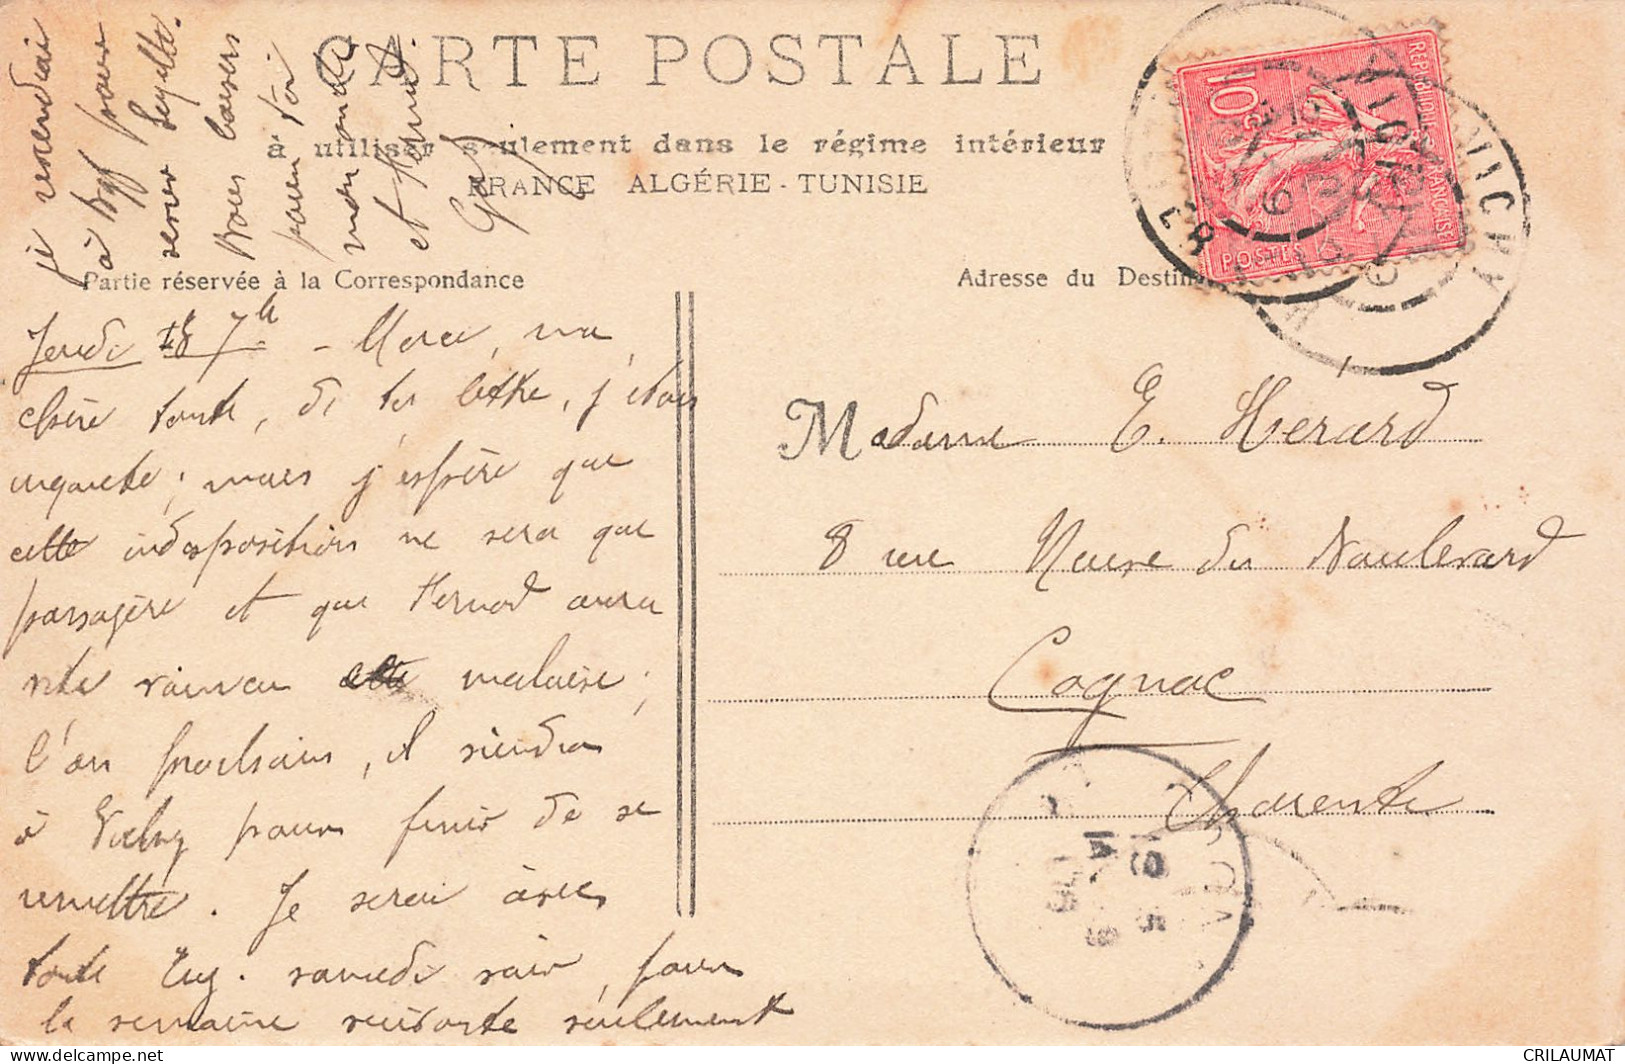 CARTE POSTALE
à utiliser seulement dans le régime intérieur
FRANCE ALGÉRIE - TUNISIE
Partie réservée à la Correspondance
Adresse du Destin
REPUBLIQUE FRANÇAISE
10c
POSTES
VICHY
Jeudi 18 7h – Merci, ma
chère tante, de ta lettre, j'étais
inquiète ; mais j'espère que
cette indisposition ne sera que
passagère et que Fernand aura
vite vaincu cette malaise ;
l'an prochain, il viendra
à Vichy pour finir de se
remettre. Je serai avec
tante Eug. samedi soir, pour
la semaine suivante seulement
je reviendrai
à pour
serrer
Bons baisers
pour toi
mon oncle
et Fernand.
Madame E. Herard
8 rue Neuve du Boulevard
Cognac
Charente
CRILAUMAT
delcampe.net